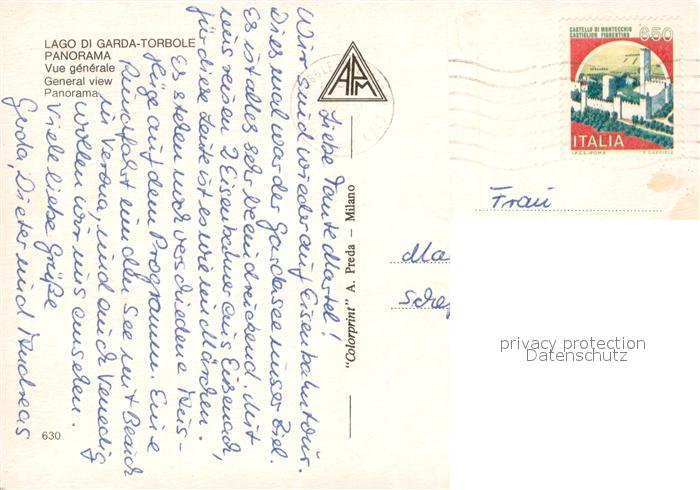 LAGO DI GARDA-TORBOLE
PANORAMA
Vue générale
General view
Panorama
630
APM
"Colorprint" A. Preda – Milano
CASTELLO DI MONTECCHIO
CASTIGLION FIORENTINO
650
ITALIA
I.P.Z.S.-ROMA
Liebe Tante Martel!
Wir sind wieder auf Eisenbahntour.
Dies mal war der Gardasee unser Ziel.
Es ist alles sehr beeindruckend. Mit
uns reisen 2 Eisenbahner aus Eisenach,
für diese Leute ist es wie im Märchen.
Es stehen noch verschiedene Aus-
flüge auf dem Programm. Eine
Rundfahrt um den See mit Besuch
in Verona, und auch Venedig
wollen wir uns ansehen.
Viele liebe Grüße
Gerda, Dieter und Andreas
Frau
Ma
Sche
privacy protection
Datenschutz